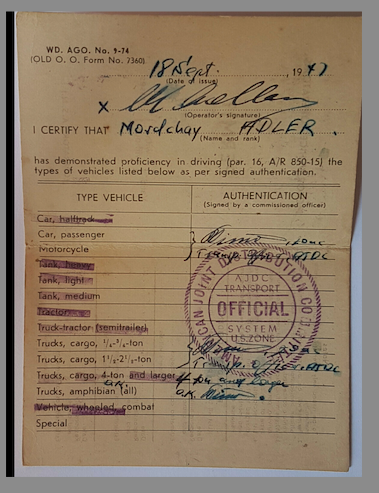 WD. AGO. No. 9-74
(OLD O. O. Form No. 7360)
18 Sept. , 19 47
(Date of issue)
x
(Operator's signature)
I CERTIFY THAT Mordchay ADLER.
(Name and rank)
has demonstrated proficiency in driving (par. 16, A/R 850-15) the
types of vehicles listed below as per signed authentication.
TYPE VEHICLE AUTHENTICATION
(Signed by a commissioned officer)
Car, halftrack
Car, passenger
Motorcycle
Tank, heavy
Tank, light
Tank, medium
Tractor
Truck-tractor (semitrailer)
Trucks, cargo, 1/2-3/4-ton
Trucks, cargo, 1 1/2-2 1/2-ton
Trucks, cargo, 4-ton and larger
Trucks, amphibian (all)
Vehicle, wheeled, combat
Special
AMERICAN JOINT DISTRIBUTION COM
AJDC
TRANSPORT
OFFICIAL
SYSTEM
U.S. ZONE
4 ton and larger
O.K.